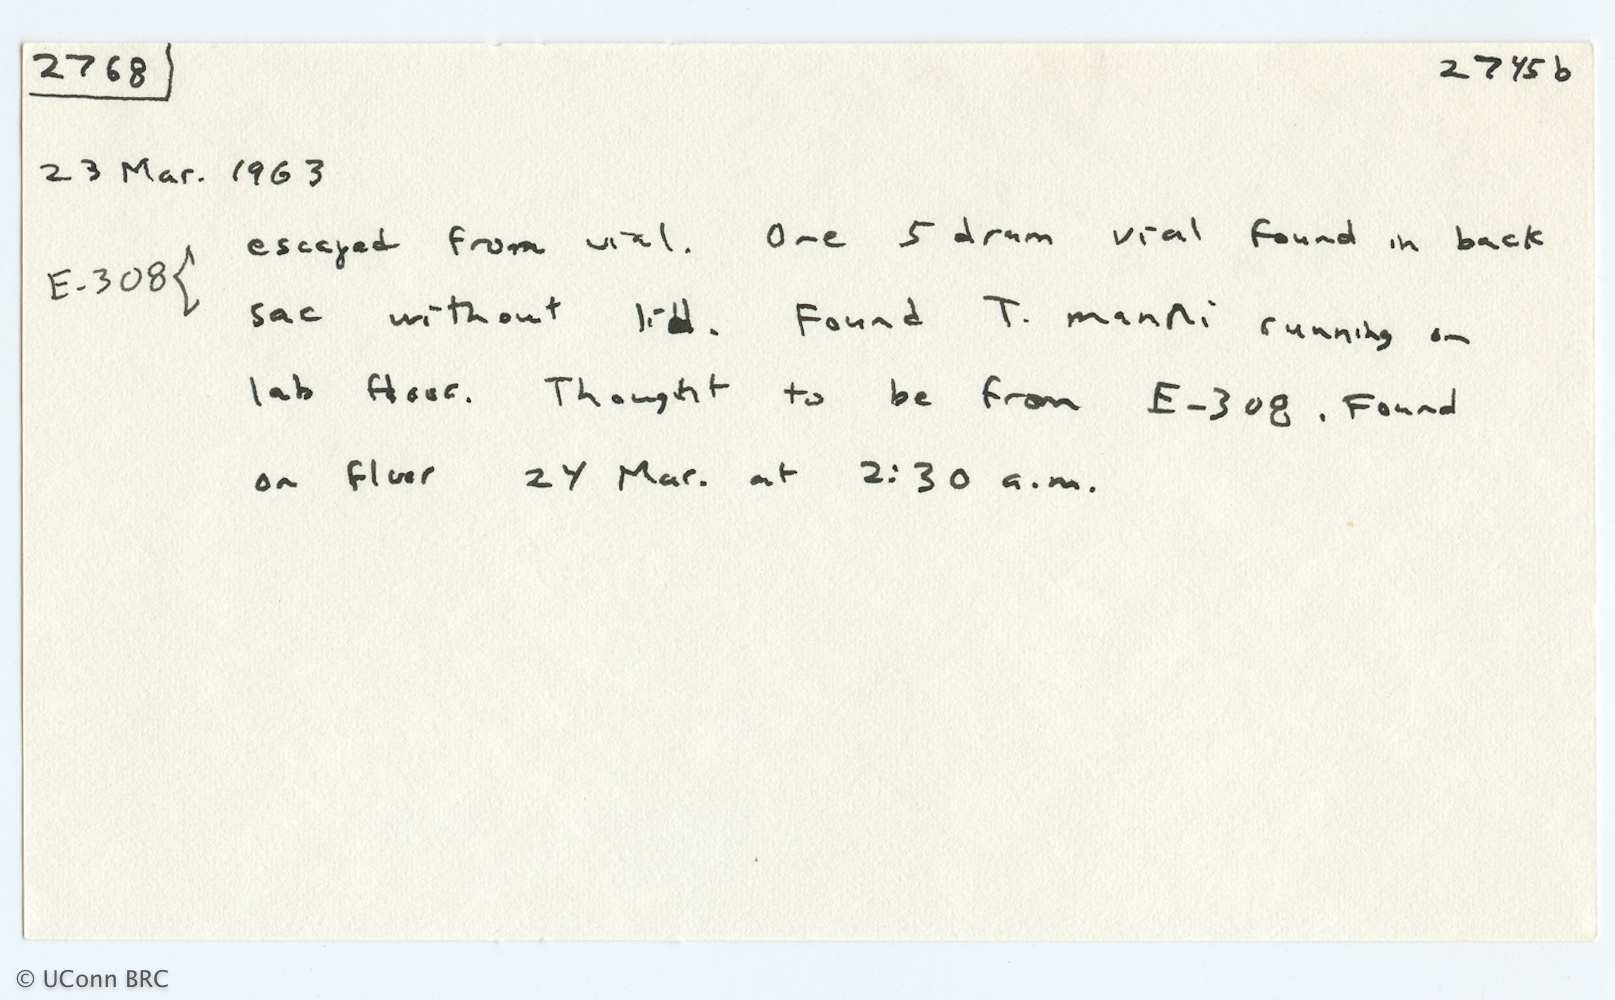 2768
2745b
23 Mar. 1963
E-308{ escaped from vial. One 5 dram vial found in back
sac without lid. Found T. manni running on
lab floor. Thought to be from E-308. Found
on floor 24 Mar. at 2:30 a.m.
© UConn BRC